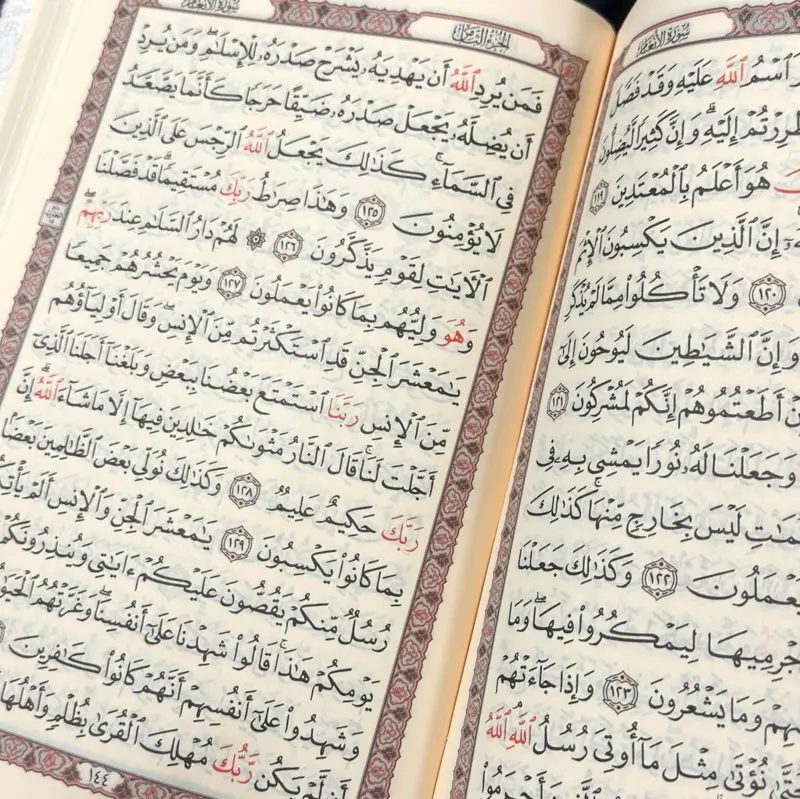 سُورَةُ الأَنْعَام
ٱسْمُ ٱللَّهِ عَلَيْهِ وَقَدْ فَصَّلَ
إِلَيْهِ ۗ وَإِنَّ كَثِيرًا لَّيُضِلُّونَ
هُوَ أَعْلَمُ بِٱلْمُعْتَدِينَ ١١٩
إِنَّ ٱلَّذِينَ يَكْسِبُونَ ٱلْإِثْمَ
١٢٠ وَلَا تَأْكُلُوا۟ مِمَّا لَمْ يُذْكَرِ
وَإِنَّ ٱلشَّيَٰطِينَ لَيُوحُونَ إِلَىٰٓ
أَطَعْتُمُوهُمْ إِنَّكُمْ لَمُشْرِكُونَ ١٢١
وَجَعَلْنَا لَهُۥ نُورًا يَمْشِى بِهِۦ فِى
لَيْسَ بِخَارِجٍ مِّنْهَا ۚ كَذَٰلِكَ
١٢٢ وَكَذَٰلِكَ جَعَلْنَا
لِيَمْكُرُوا۟ فِيهَا ۖ وَمَا
وَمَا يَشْعُرُونَ ١٢٣ وَإِذَا جَآءَتْهُمْ
نُؤْتَىٰ مِثْلَ مَآ أُوتِىَ رُسُلُ ٱللَّهِ ۘ ٱللَّهُ
الجُزْءُ الثَّامِنُ سُورَةُ الأَنْعَام
فَمَن يُرِدِ ٱللَّهُ أَن يَهْدِيَهُۥ يَشْرَحْ صَدْرَهُۥ لِلْإِسْلَٰمِ ۖ وَمَن يُرِدْ
أَن يُضِلَّهُۥ يَجْعَلْ صَدْرَهُۥ ضَيِّقًا حَرَجًا كَأَنَّمَا يَصَّعَّدُ
فِى ٱلسَّمَآءِ ۚ كَذَٰلِكَ يَجْعَلُ ٱللَّهُ ٱلرِّجْسَ عَلَى ٱلَّذِينَ
لَا يُؤْمِنُونَ ١٢٥ وَهَٰذَا صِرَٰطُ رَبِّكَ مُسْتَقِيمًا ۗ قَدْ فَصَّلْنَا
ٱلْءَايَٰتِ لِقَوْمٍ يَذَّكَّرُونَ ١٢٦ ۞ لَهُمْ دَارُ ٱلسَّلَٰمِ عِندَ رَبِّهِمْ ۖ
وَهُوَ وَلِيُّهُم بِمَا كَانُوا۟ يَعْمَلُونَ ١٢٧ وَيَوْمَ يَحْشُرُهُمْ جَمِيعًا
يَٰمَعْشَرَ ٱلْجِنِّ قَدِ ٱسْتَكْثَرْتُم مِّنَ ٱلْإِنسِ ۖ وَقَالَ أَوْلِيَآؤُهُم
مِّنَ ٱلْإِنسِ رَبَّنَا ٱسْتَمْتَعَ بَعْضُنَا بِبَعْضٍ وَبَلَغْنَآ أَجَلَنَا ٱلَّذِىٓ
أَجَّلْتَ لَنَا ۚ قَالَ ٱلنَّارُ مَثْوَىٰكُمْ خَٰلِدِينَ فِيهَآ إِلَّا مَا شَآءَ ٱللَّهُ ۗ إِنَّ
رَبَّكَ حَكِيمٌ عَلِيمٌ ١٢٨ وَكَذَٰلِكَ نُوَلِّى بَعْضَ ٱلظَّٰلِمِينَ بَعْضًۢا
بِمَا كَانُوا۟ يَكْسِبُونَ ١٢٩ يَٰمَعْشَرَ ٱلْجِنِّ وَٱلْإِنسِ أَلَمْ يَأْتِكُمْ
رُسُلٌ مِّنكُمْ يَقُصُّونَ عَلَيْكُمْ ءَايَٰتِى وَيُنذِرُونَكُمْ
يَوْمِكُمْ هَٰذَا ۚ قَالُوا۟ شَهِدْنَا عَلَىٰٓ أَنفُسِنَا ۖ وَغَرَّتْهُمُ ٱلْحَيَوٰةُ
وَشَهِدُوا۟ عَلَىٰٓ أَنفُسِهِمْ أَنَّهُمْ كَانُوا۟ كَٰفِرِينَ
أَن لَّمْ يَكُن رَّبُّكَ مُهْلِكَ ٱلْقُرَىٰ بِظُلْمٍ وَأَهْلُهَا
١٤٤